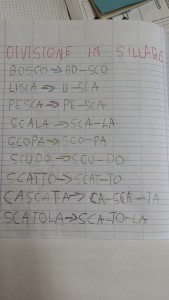 DIVISIONE IN SILLABE
BOSCO→BO-SCO
LISCA→LI-SCA
PESCA→PE-SCA
SCALA→SCA-LA
SCOPA→SCO-PA
SCUDO→SCU-DO
SCATTO→SCAT-TO
CASCATA→CA-SCA-TA
SCATOLA→SCA-TO-LA